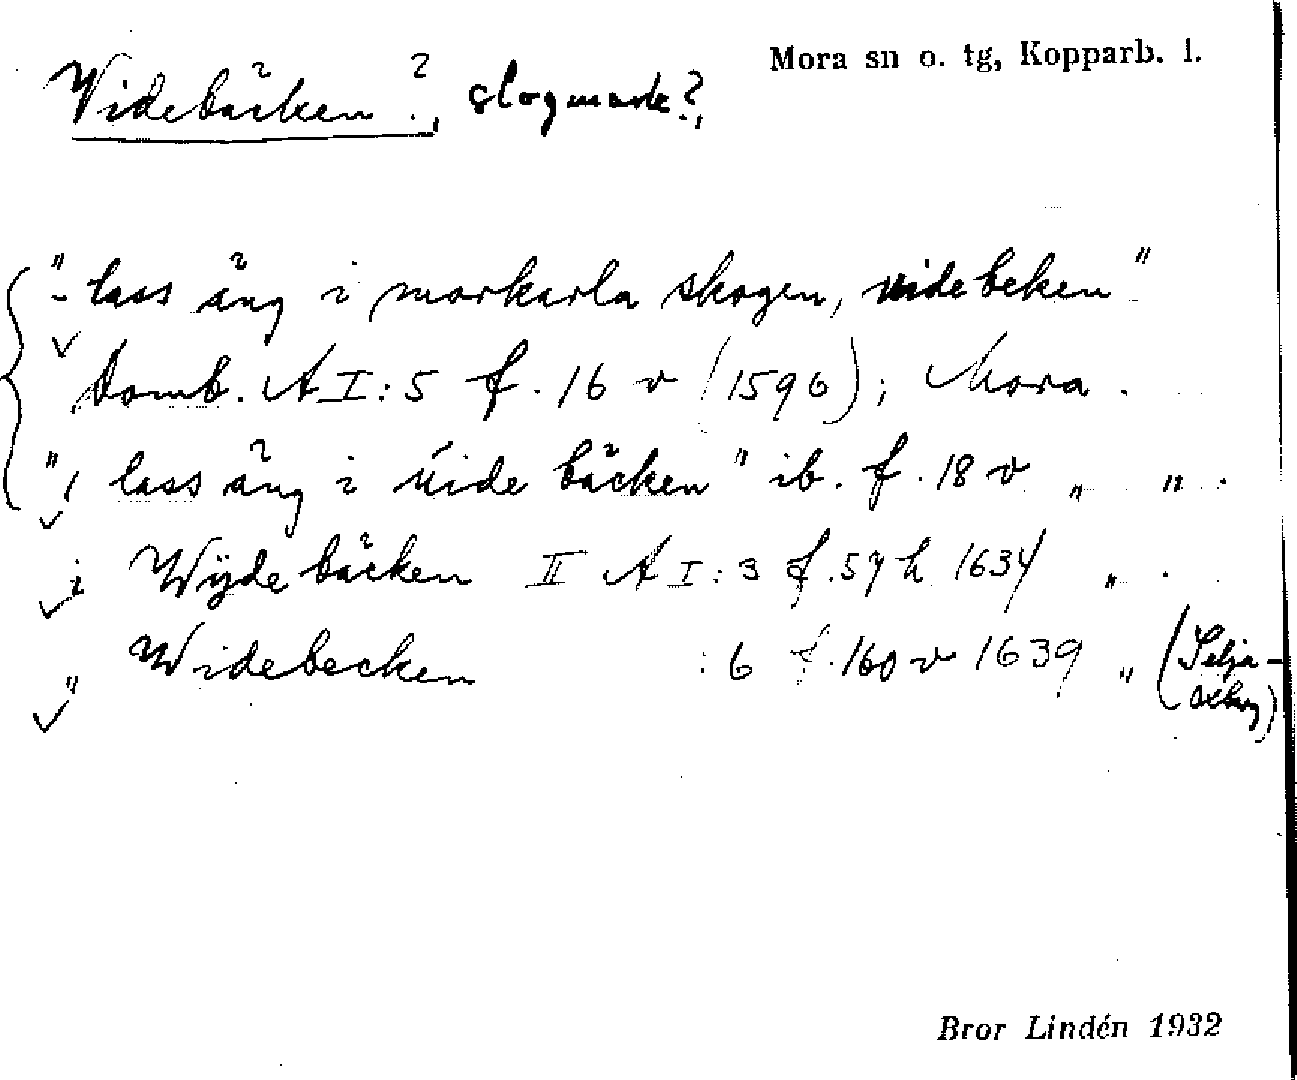 Mora sn o. tg, Kopparb. l.
Widebäcken ?, slogmark?,
"- lass äng i morkarla skogen, videbeken"
Domb. A I:5 f. 16 v (1596); Mora.
", lass äng i vide bäcken" ib. f. 18 v " ".
i Wÿde bäcken II A I:3 f. 57 h 1634 " .
" Widebecken :6 f. 160 v 1639 " (Selja-
Bror Lindén 1932